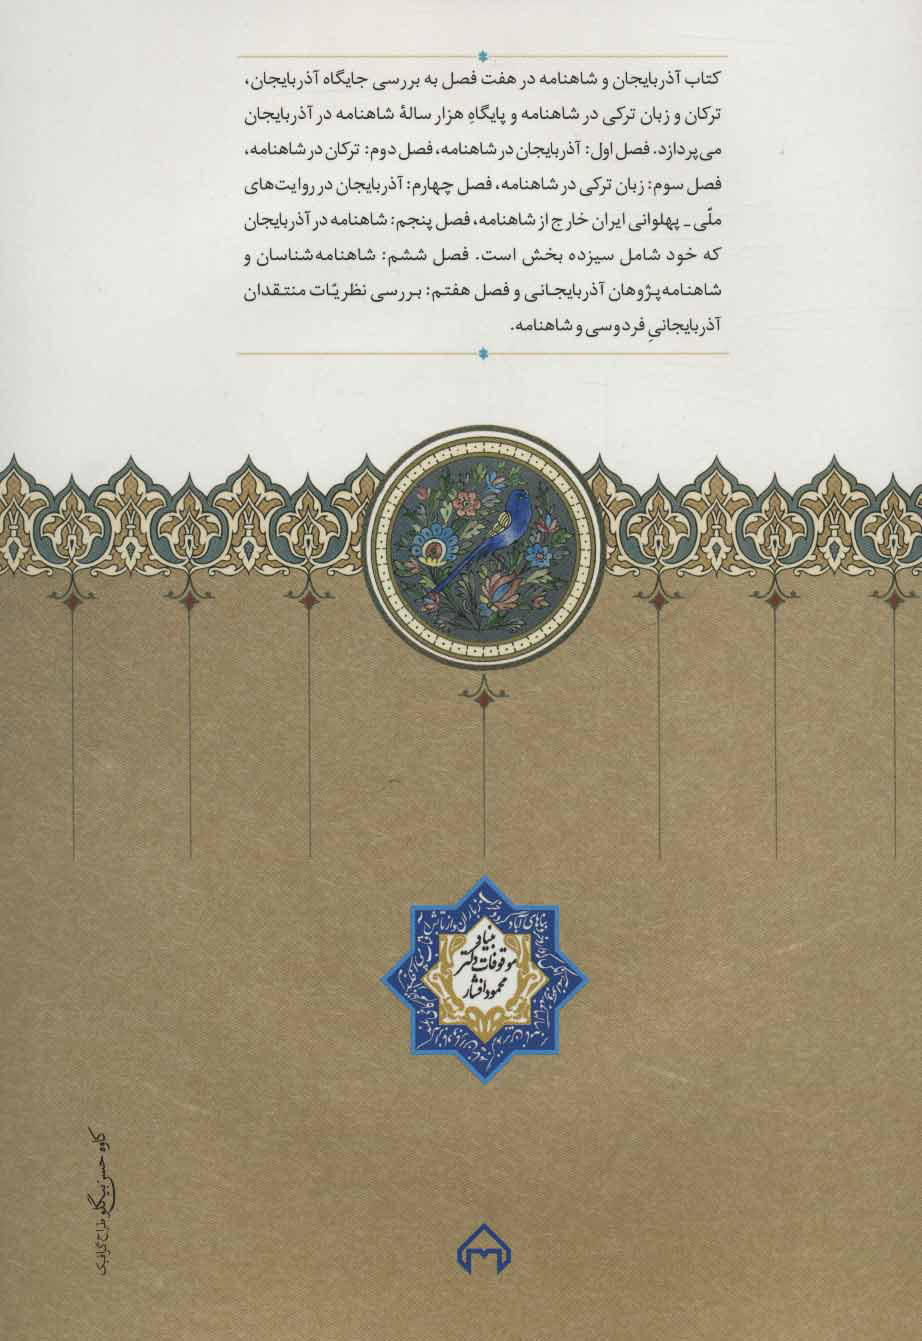 کتاب آذربایجان و شاهنامه در هفت فصل به بررسی جایگاه آذربایجان،
ترکان و زبان ترکی در شاهنامه و پایگاهِ هزار سالهٔ شاهنامه در آذربایجان
می‌پردازد. فصل اول: آذربایجان در شاهنامه، فصل دوم: ترکان در شاهنامه،
فصل سوم: زبان ترکی در شاهنامه، فصل چهارم: آذربایجان در روایت‌های
ملّی ـ پهلوانی ایران خارج از شاهنامه، فصل پنجم: شاهنامه در آذربایجان
که خود شامل سیزده بخش است. فصل ششم: شاهنامه‌شناسان و
شاهنامه‌پژوهان آذربایجانی و فصل هفتم: بررسی نظریّات منتقدان
آذربایجانیِ فردوسی و شاهنامه.
بنیاد
موقوفات دکتر
محمود افشار
کاوه حسن بیگلو
طراح گرافیک